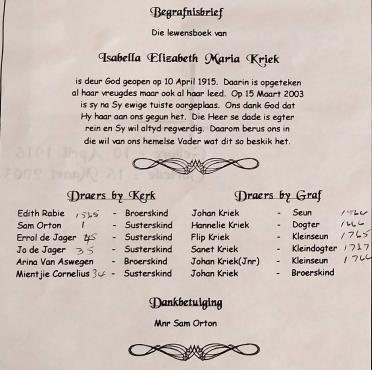 Begrafnisbrief
Die lewensboek van
Isabella Elizabeth Maria Kriek
is deur God geopen op 10 April 1915. Daarin is opgeteken
al haar vreugdes maar ook al haar leed. Op 15 Maart 2003
is sy na Sy ewige tuiste oorgeplaas. Ons dank God dat
Hy haar aan ons gegun het. Die Heer se dade is egter
rein en Sy wil altyd regverdig. Daarom berus ons in
die wil van ons hemelse Vader wat dit so beskik het.
Draers by Kerk
Edith Rabie - Broerskind
Sam Orton - Susterskind
Errol de Jager 45 - Susterskind
Jo de Jager 35 - Susterskind
Arina Van Aswegen - Broerskind
Mientjie Cornelius 34 - Susterskind
Draers by Graf
Johan Kriek - Seun
Hannelie Kriek - Dogter
Flip Kriek - Kleinseun 1765
Sanet Kriek - Kleindogter
Johan Kriek(Jnr) - Kleinseun
Johan Kriek - Broerskind
Dankbetuiging
Mnr Sam Orton